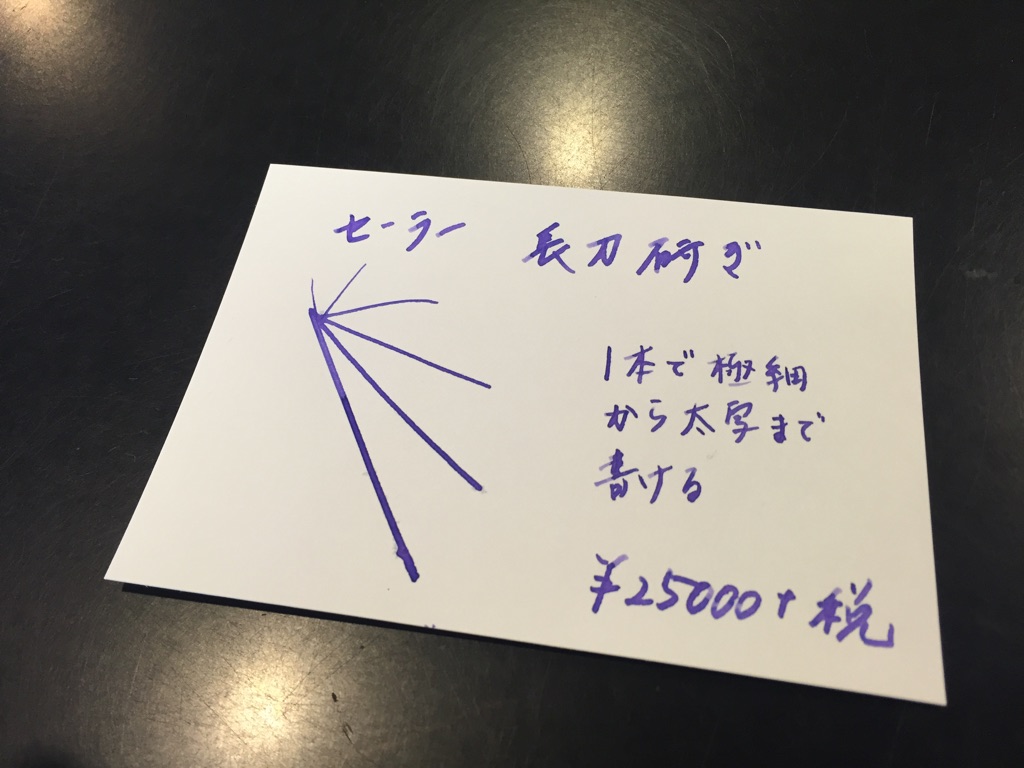 セーラー 長刀研ぎ
1本で極細
から太字まで
書ける
¥25000+税